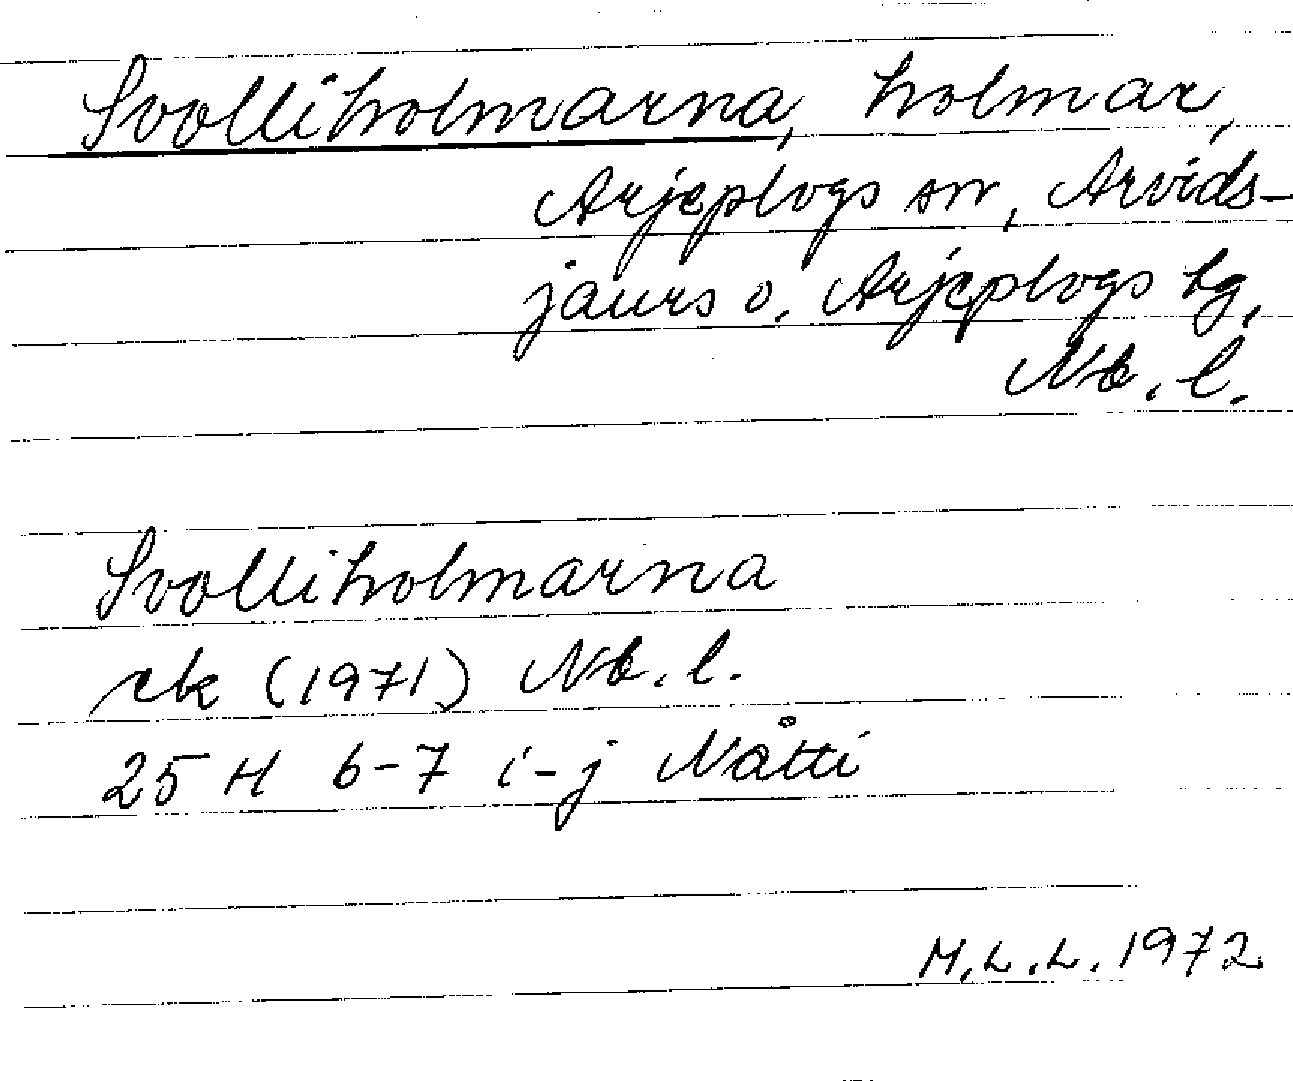 Svolliholmarna, holmar,
Arjeplogs sn, Arvids-
jaurs o. Arjeplogs tg,
Nb. l.
Svolliholmarna
rek (1971) Nb. l.
25 H 6-7 i-j Nåtti
M.L.L. 1972